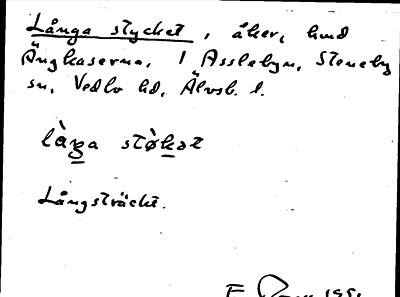 Långa stycket, åker, hmd
Ängkaserna, 1 Asslebyn, Steneby
sn, Vedbo hd, Älvsb. l.
làŋa stø̀kət
Långsträckt.